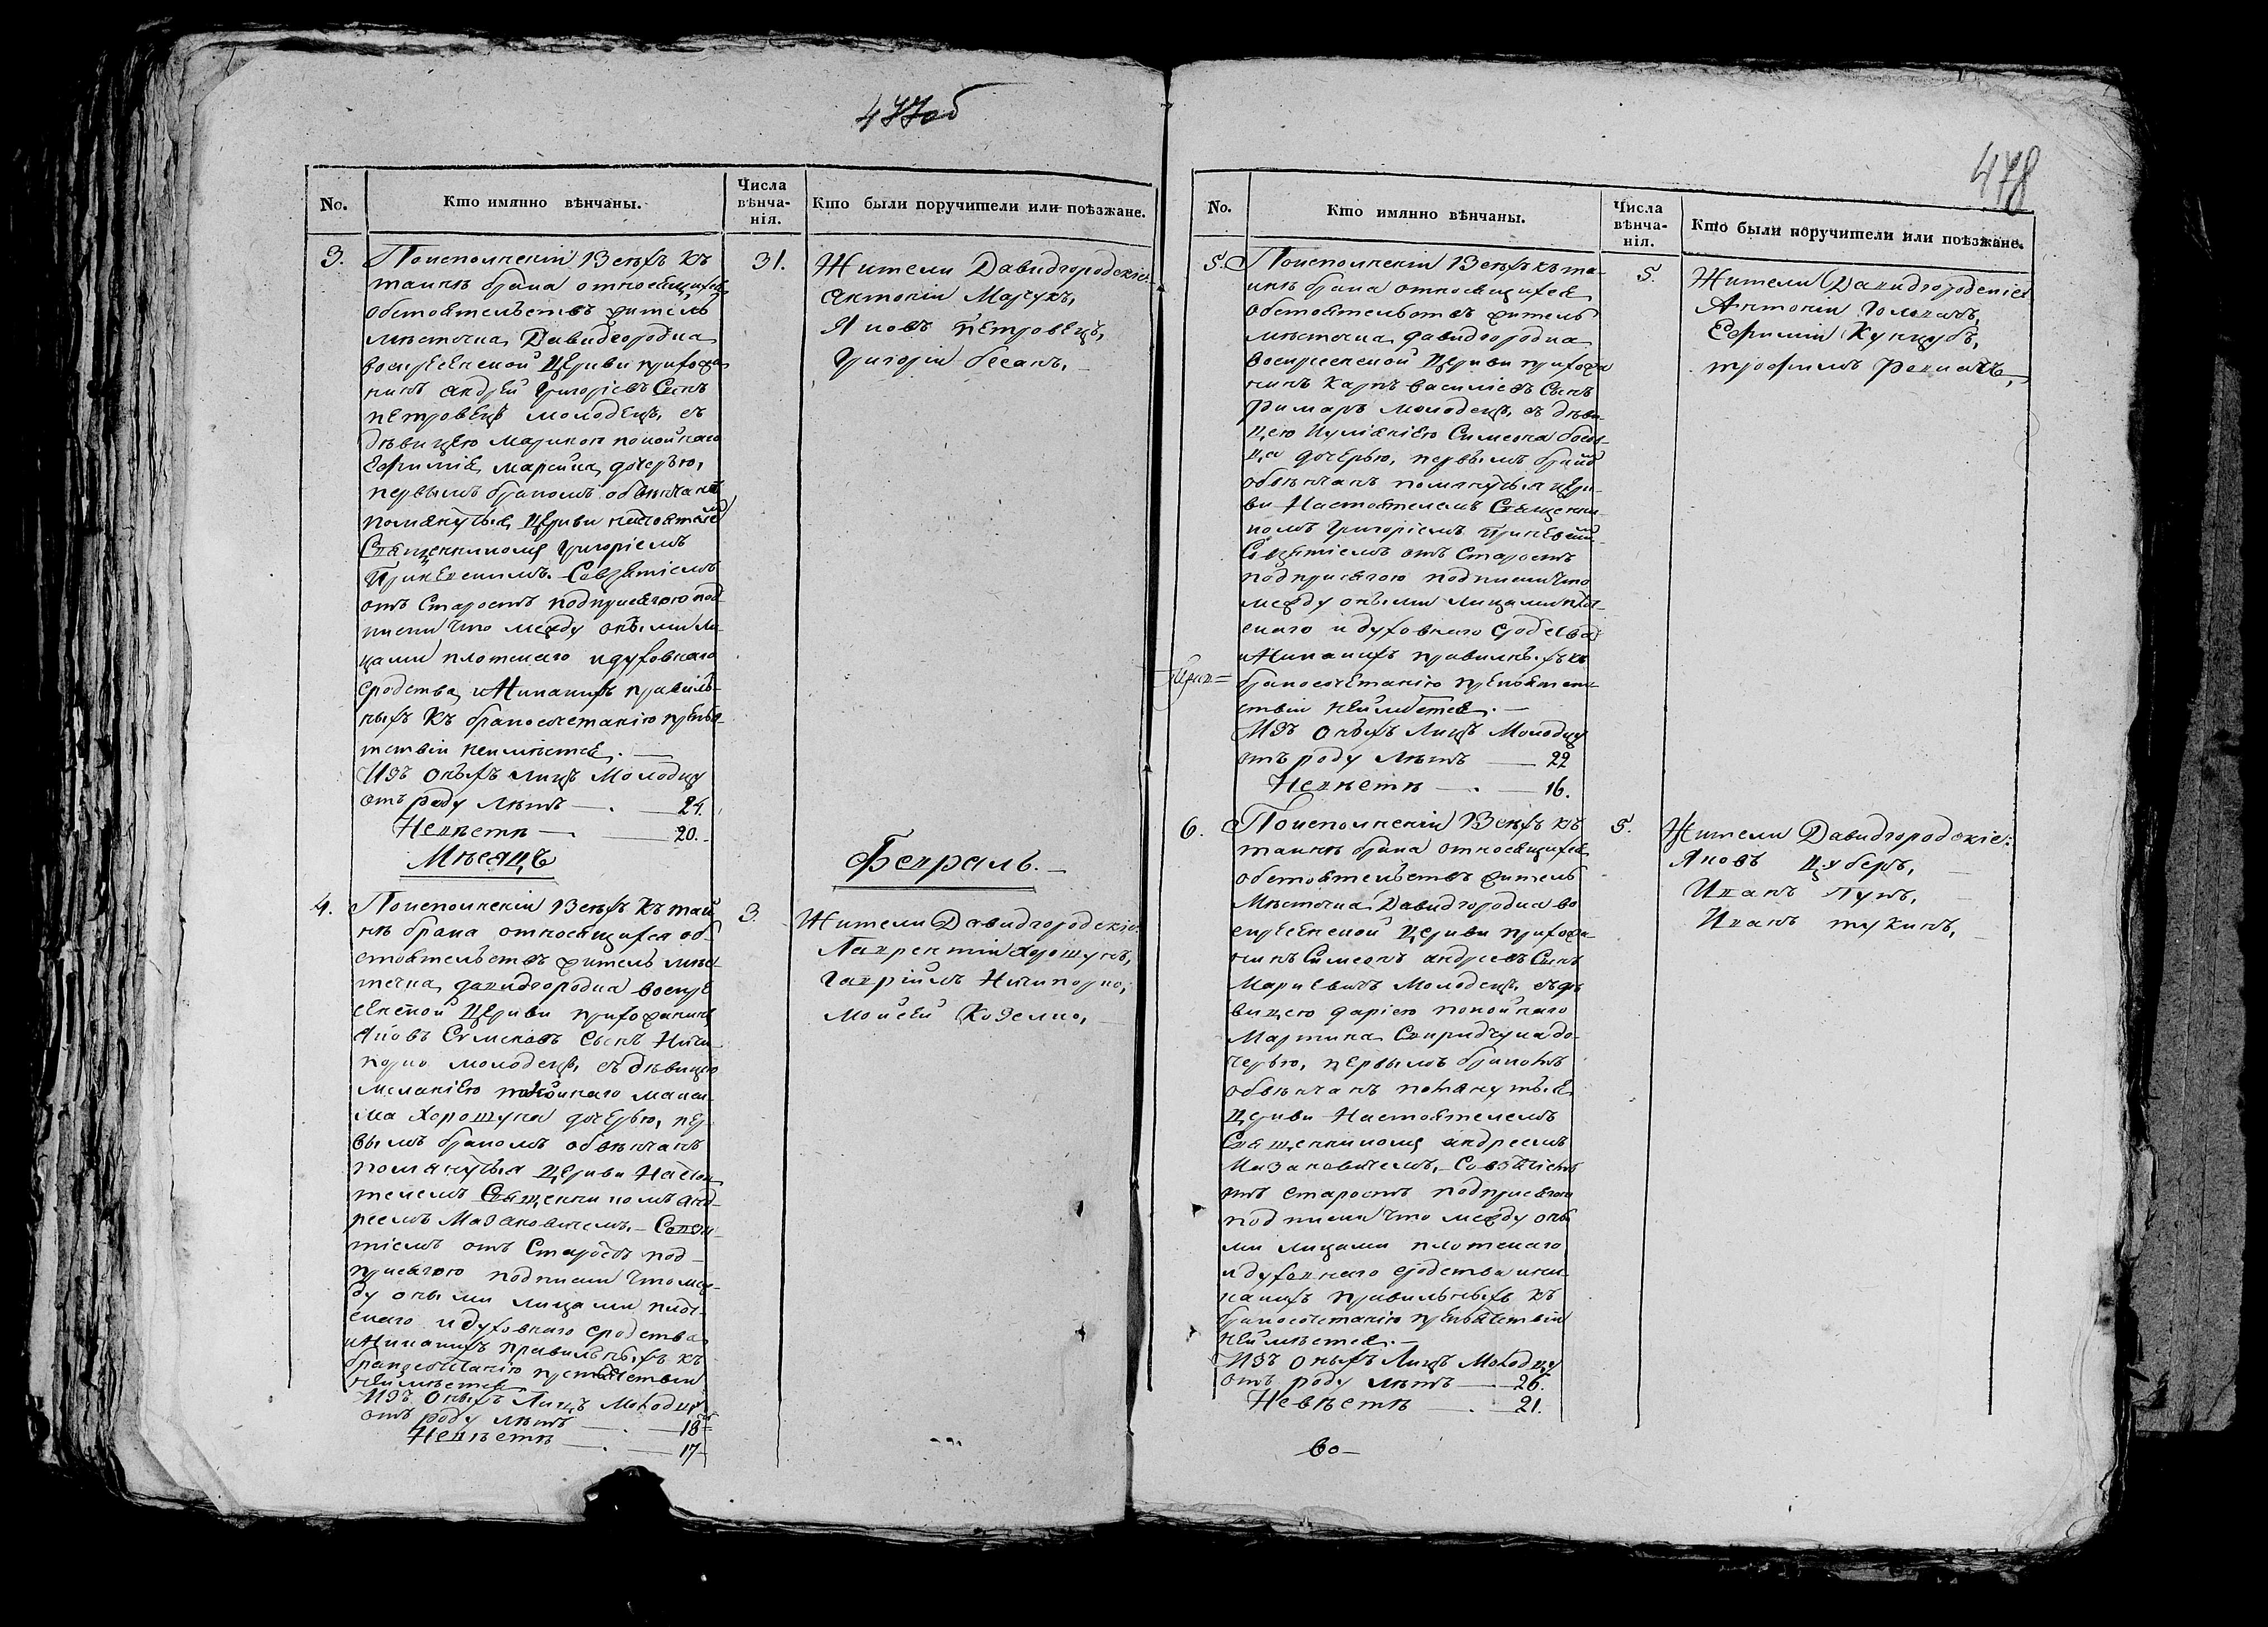 477об
No.
Кто имянно вѣнчаны.
Числа вѣнча-нія.
Кто были поручители или поѣзжане.
3.
По исполненіи Всѣхъ къ
таинѣ брака относящихся
обстоятельствъ житель
мѣстечка Давидгородка
воскресенской Церкви прихожа
нинъ андрей григоріевъ Сынъ
петровецъ молодецъ, съ
дѣвицею Мариною покойнаго
Ефимія дочерью,
первымъ бракомъ обвѣнчанъ
помянутыя Церкви настоятелемъ
Священникомъ григоріемъ
Со взятіемъ
отъ Старостъ подприсягою под
писки что между оными ли
цами плотскаго идуховнаго
сродства иНикакихъ правиль-
ныхъ Къ бракосочетанію препя
тствій неимѣтся. —
Изъ оныхъ лицъ Молодцу
отъ роду лѣтъ — 24.
Невѣстѣ — 20.
31.
Жители Давидгородскіе
антоній Марчукъ,
Яковъ Петровецъ,
григорій бесанъ,
Мѣсяцъ
Февраль. —
4.
По исполненіи Всѣхъ Къ таи
нѣ брака относящихся об-
стоятельствъ житель мѣс
течка давидгородка воскре
сенской Церкви прихожанинъ
Яковъ Симеоновъ Сынъ Ничи
порко молодецъ, съ дѣвицею
меланіею покойнаго Макси
ма Хорошуна дочерью, пер
вымъ бракомъ обвѣнчанъ
помянутыя Церкви Настоя
телемъ Священникомъ анд
реемъ Мазановичемъ. — Совзя
тіемъ отъ Старостъ под-
присягою подписки что меж
ду оными лицами плот-
скаго идуховнаго сродства
иНикакихъ правильныхъ къ
бракосочетанію препятствій
неимѣется
Изъ Оныхъ Лицъ Молодцу
отъ роду лѣтъ — 18
Невѣстѣ — 17
3.
Жители Давидгородскіе
Лаврентій Хорошунъ,
гавріилъ Ничипорко,
Мойсей Козелко,
478
No.
Кто имянно вѣнчаны.
Числа вѣнча-нія.
Кто были поручители или поѣзжане.
5.
По исполненіи Всѣхъ къ та-
инѣ брака относящихся
обстоятельствъ житель
мѣстечка давидгородка
воскресенской Церкви прихожа
нинъ Карпъ василіевъ Сынъ
Римаръ молодецъ, съ дѣви
цею Иуліаніею Симеона
дочерью, первымъ бракомъ
обвѣнчанъ помянутыя церк-
ви Настоятелемъ Священни
комъ григоріемъ
Совзятіемъ отъ Старостъ
подприсягою подписки что
между оными лицами плот-
скаго идуховнаго сродства
иНикакихъ правильныхъ къ
бракосочетанію препятст
ствій неимѣется. —
Изъ Оныхъ Лицъ Молодцу
отъ роду лѣтъ — 22
Невѣстѣ — 16.
5.
Жители Давидгородскіе
Антоній Головачъ,
Ефимій Кунцубъ,
трофимъ
6.
По исполненіи Всѣхъ къ
таинѣ брака относящихся
обстоятельствъ житель
Мѣстечка Давидгородка во
скресенской Церкви прихожа-
нинъ Симеонъ андреевъ Сынъ
Марксвичъ Молодецъ, съ дѣ
вицею даріею покойнаго
Мартина Свиридчука до-
черью, первымъ бракомъ
обвѣнчанъ помянутыя
Церкви Настоятелемъ
Священникомъ андреемъ
Мазановичемъ, — Совзятіемъ
отъ старостъ подприсягою
подписки что между оны
ми лицами плотскаго
идуховнаго сродства ини-
какихъ правильныхъ къ
бракосочетанію препятствій
неимѣется. —
Изъ Оныхъ Лицъ Молодцу
отъ роду лѣтъ — 26.
Невѣстѣ — 21.
5.
Жители Давидгородскіе:
Яковъ Цуберъ,
Иванъ Лукъ,
Иванъ
60 —